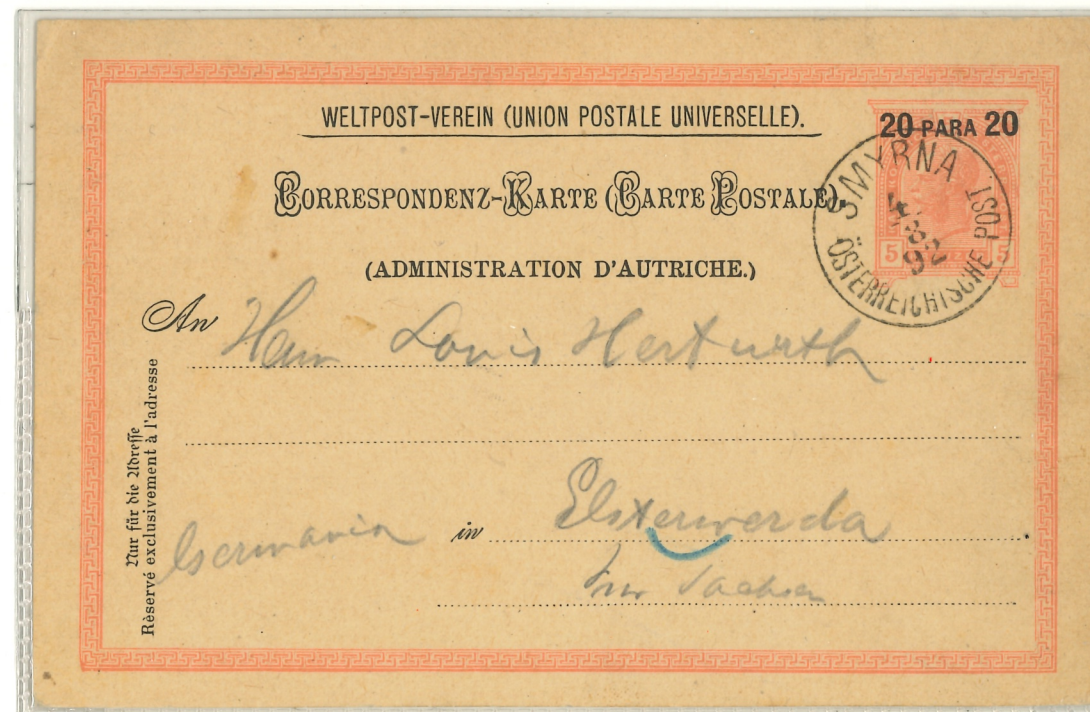 WELTPOST-VEREIN (UNION POSTALE UNIVERSELLE).
20 PARA 20
CORRESPONDENZ-KARTE (CARTE POSTALE).
SMYRNA
ÖSTERREICHISCHE POST
5 5
(ADMINISTRATION D'AUTRICHE.)
An Herrn Louis Hertwrth
Nur für die Adresse
Réservé exclusivement à l'adresse
Germania in Elsterwerda
Sachsen